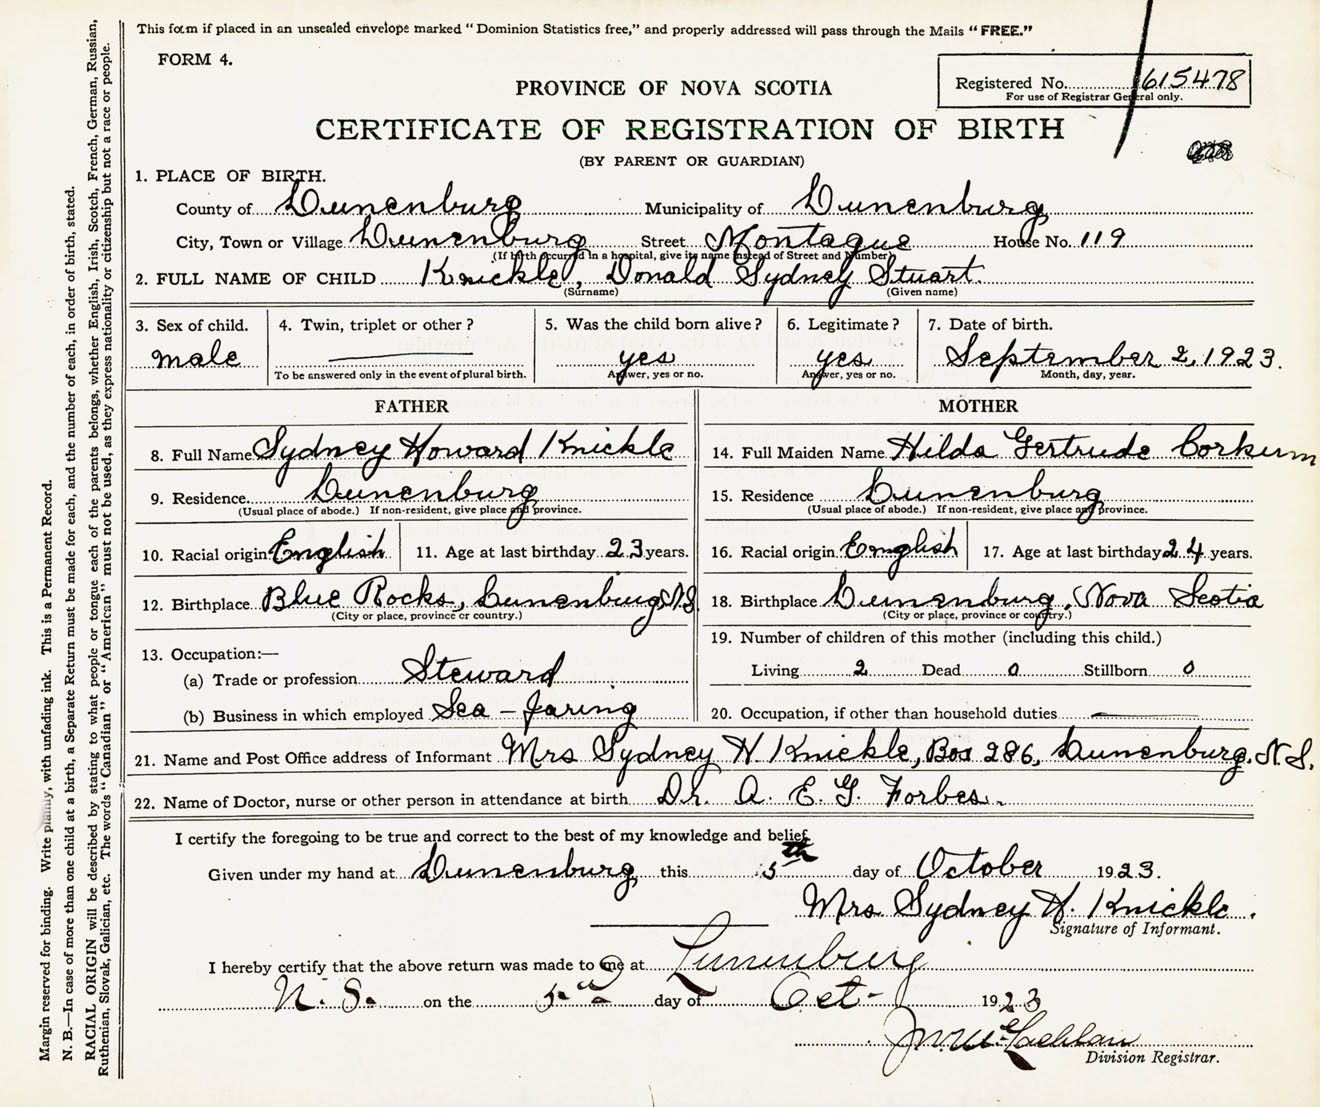 This form if placed in an unsealed envelope marked "Dominion Statistics free," and properly addressed will pass through the Mails "FREE."
FORM 4.
Registered No. 615478
For use of Registrar General only.
PROVINCE OF NOVA SCOTIA
CERTIFICATE OF REGISTRATION OF BIRTH
(BY PARENT OR GUARDIAN)
1. PLACE OF BIRTH.
County of Lunenburg Municipality of Lunenburg
City, Town or Village Lunenburg Street Montague House No. 119
(If birth occurred in a hospital, give its name instead of Street and Number)
2. FULL NAME OF CHILD Knickle, Donald Sydney Stuart.
(Surname) (Given name)
3. Sex of child. 4. Twin, triplet or other? 5. Was the child born alive? 6. Legitimate? 7. Date of birth.
male yes yes September 2, 1923.
To be answered only in the event of plural birth. Answer, yes or no. Answer, yes or no. Month, day, year.
FATHER MOTHER
8. Full Name Sydney Howard Knickle 14. Full Maiden Name Hilda Gertrude Corkum
9. Residence Lunenburg 15. Residence Lunenburg
(Usual place of abode.) If non-resident, give place and province. (Usual place of abode.) If non-resident, give place and province.
10. Racial origin English 11. Age at last birthday 23 years. 16. Racial origin English 17. Age at last birthday 24 years.
12. Birthplace Blue Rocks, Lunenburg N.S. 18. Birthplace Lunenburg, Nova Scotia
(City or place, province or country.) (City or place, province or country.)
13. Occupation:— 19. Number of children of this mother (including this child.)
(a) Trade or profession Steward Living 2 Dead 0 Stillborn 0
(b) Business in which employed Sea-faring 20. Occupation, if other than household duties
21. Name and Post Office address of Informant Mrs Sydney H Knickle, Box 286, Lunenburg, N.S.
22. Name of Doctor, nurse or other person in attendance at birth Dr. A. E. G. Forbes.
I certify the foregoing to be true and correct to the best of my knowledge and belief.
Given under my hand at Lunenburg this 5th day of October 1923.
Mrs Sydney H. Knickle.
Signature of Informant.
I hereby certify that the above return was made to me at Lunenburg
N. S. on the day of Oct- 1923
McLachlan
Division Registrar.
Margin reserved for binding. Write plainly, with unfading ink. This is a Permanent Record.
N. B.—In case of more than one child at a birth, a Separate Return must be made for each, and the number of each, in order of birth, stated.
RACIAL ORIGIN will be described by stating to what people or tongue each of the parents belongs, whether English, Irish, Scotch, French, German, Russian,
Ruthenian, Slovak, Galician, etc. The words "Canadian" or "American" must not be used, as they express nationality or citizenship but not a race or people.